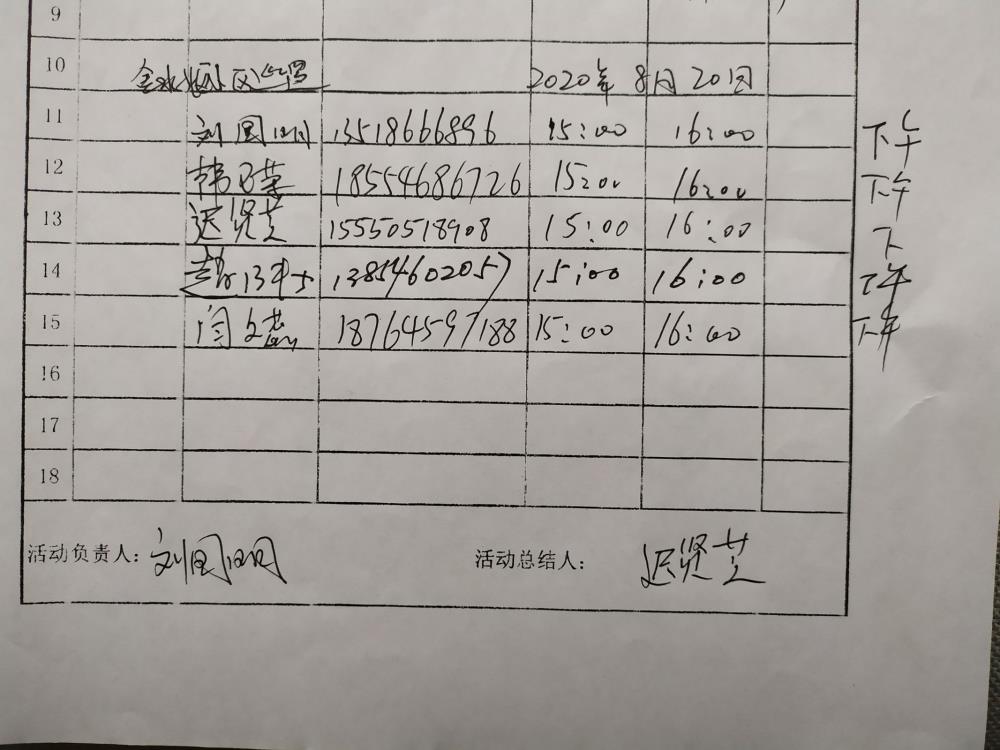 9
10 2020年8月20日
11 刘国明 13518666896 15:00 16:00 下午
12 韩 荣 18554686726 15:00 16:00 下午
13 迟贤芝 15550518908 15:00 16:00 下
14 赵 13854602057 15:00 16:00 下午
15 闫文 18764597188 15:00 16:00 下午
16
17
18
活动负责人: 刘国明 活动总结人: 迟贤芝